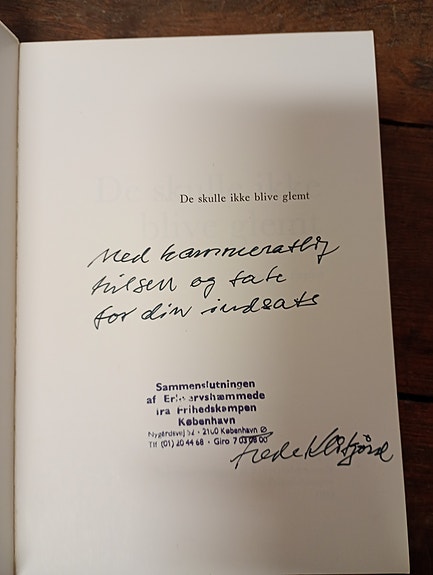 De skulle ikke blive glemt
Med kammeratlig
hilsen og tak
for din indsats
Sammenslutningen
af Erhvervshæmmede
fra Frihedskampen
København
Nygårdsvej 52 - 2100 København Ø
Tlf (01) 20 44 68 - Giro 7 03 08 00
Frede Klitgård